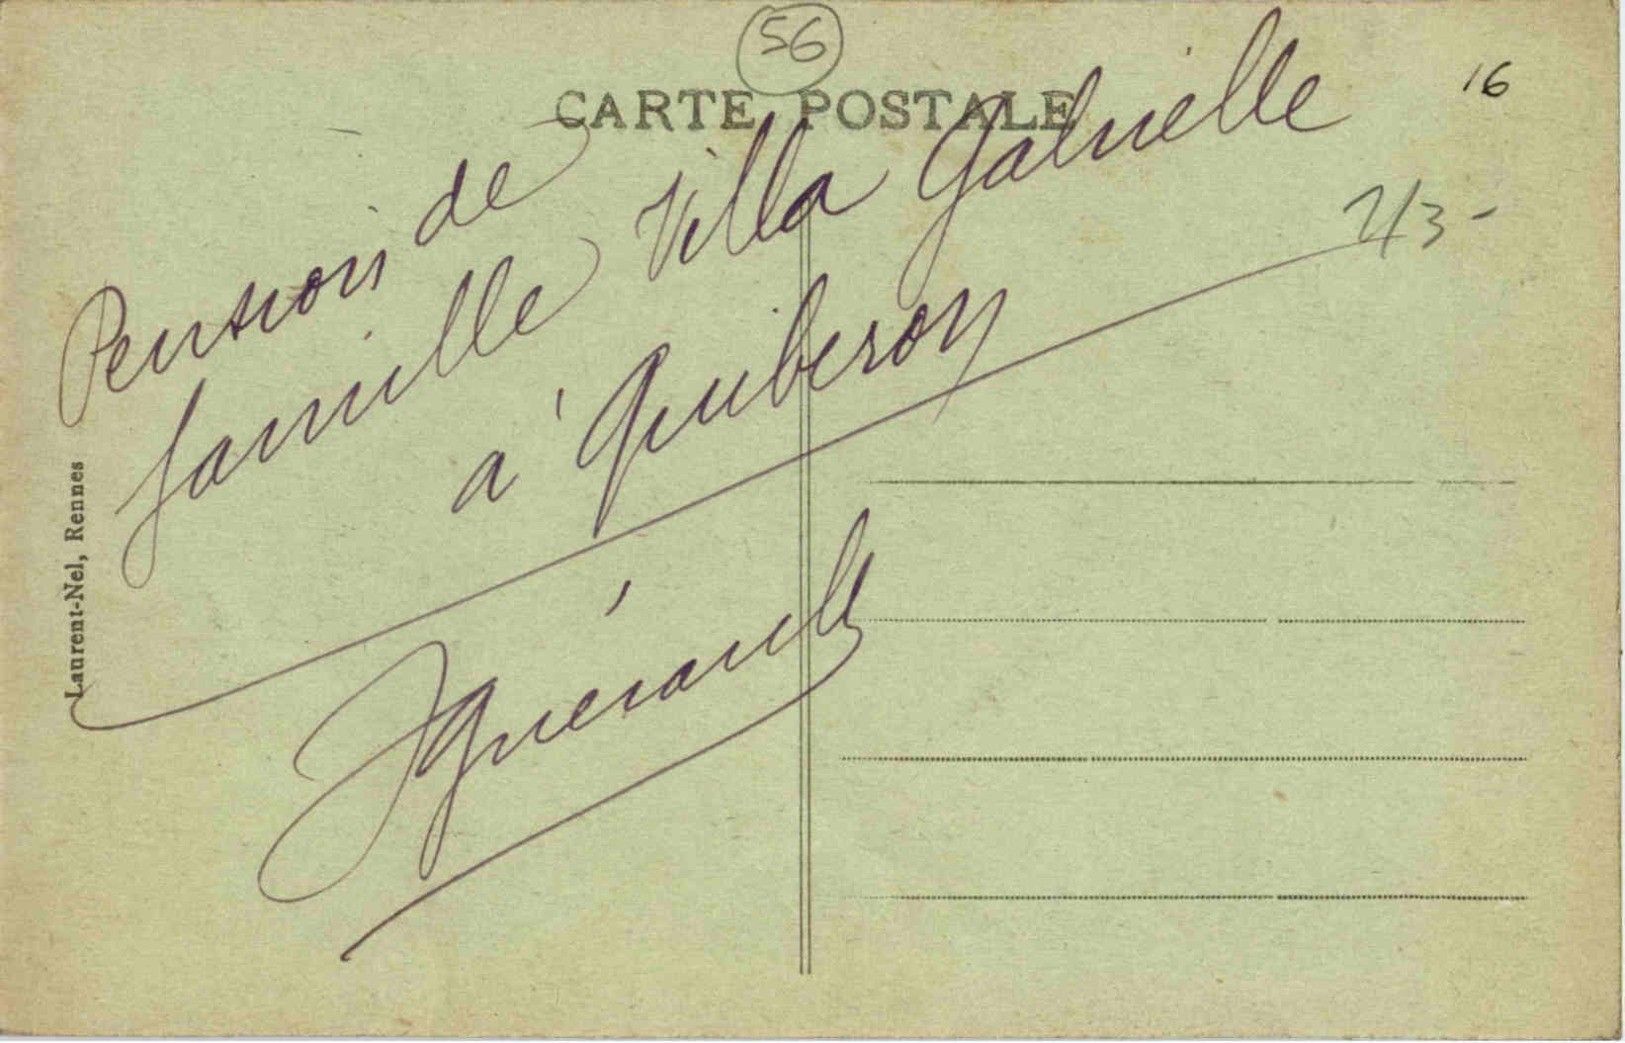 56
CARTE POSTALE
16
Pension de
famille Villa Gabrielle
à Quiberon
Laurent-Nel, Rennes